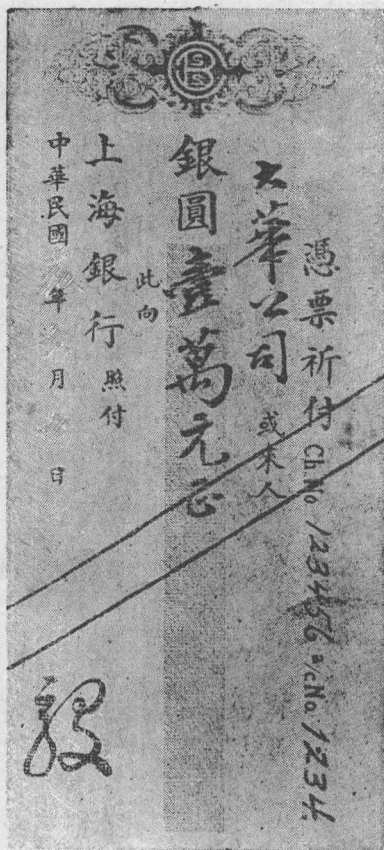 憑票祈付 Ch.No 123456 a/cNo. 1234
大華公司 或來人
銀圓壹萬元正
此向
上海銀行 照付
中華民國 年 月 日